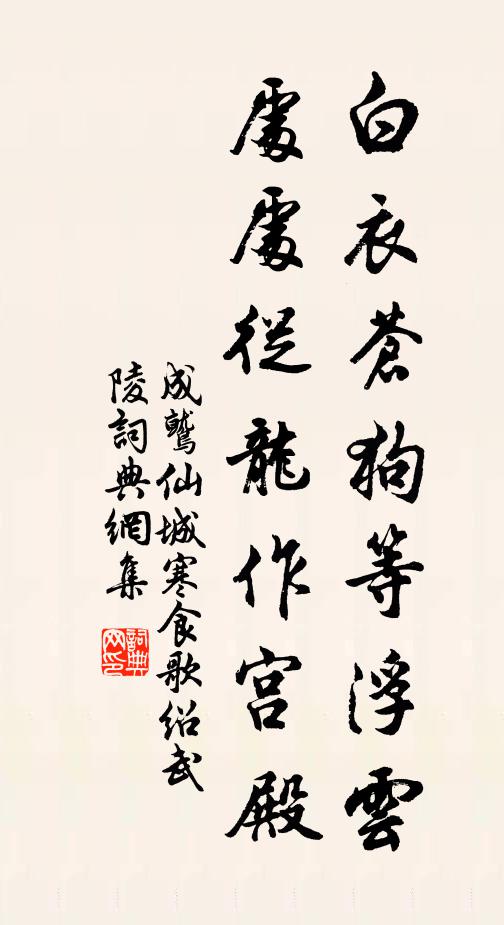 白衣蒼狗等浮雲
處處從龍作宮殿
成鷲仙城寒食歌紹武
陵詞典網集
詞典网印